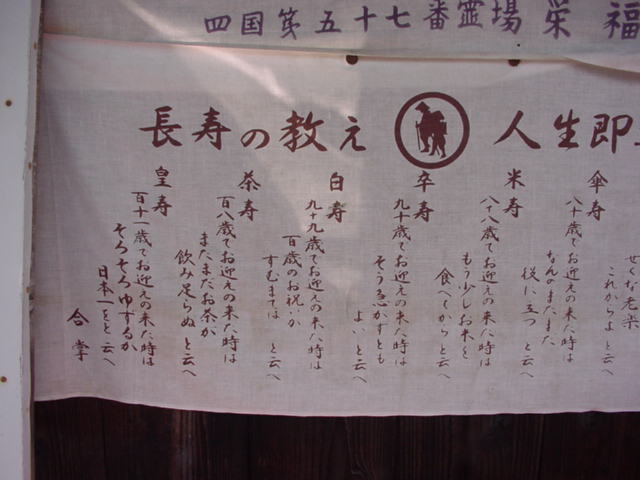 四国第五十七番霊場 栄福
長寿の教え 人生即
せくな老楽
これからよと云へ
傘寿
八十歳でお迎えの来た時は
なんのまだまだ
役に立つと云へ
米寿
八十八歳でお迎えの来た時は
もう少しお米を
食べてからと云へ
卒寿
九十歳でお迎えの来た時は
そう急がずとも
よいと云へ
白寿
九十九歳でお迎えの来た時は
百歳のお祝いが
すむまでは と云へ
茶寿
百八歳でお迎えの来た時は
まだまだお茶が
飲み足らぬと云へ
皇寿
百十一歳でお迎えの来た時は
そろそろゆずるか
日本一をと云へ
合掌